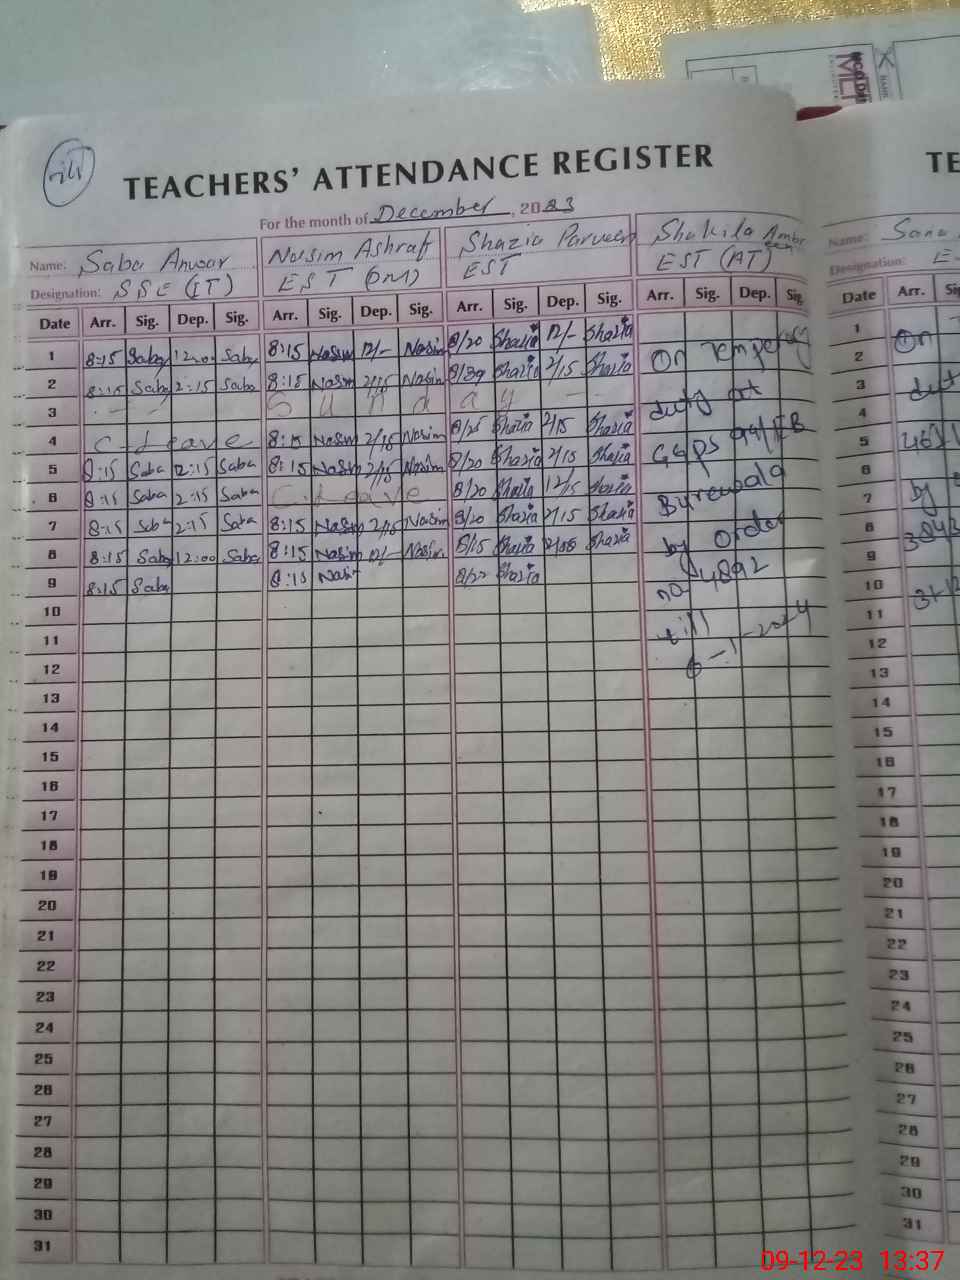 TEACHERS' ATTENDANCE REGISTER
For the month of December, 2023
Name: Saba Anwar Nasim Ashraf Shazia Parveen Shakila Ambreen
Designation: SSE (IT) EST (DM) EST EST (AT)
Date Arr. Sig. Dep. Sig. Arr. Sig. Dep. Sig. Arr. Sig. Dep. Sig. Arr. Sig. Dep. Sig
1 8:15 Saba 12:00 Saba 8:15 Nasim 12/- Nasim 8/20 Shazia 12/- Shazia
2 8:15 Saba 2:15 Saba 8:15 Nasim 2/15 Nasim 8/39 Shazia 2/15 Shazia
3 Sunday
4 C-Leave 8:15 Nasim 2/15 Nasim 8/25 Shazia 2/15 Shazia
5 8:15 Saba 2:15 Saba 8:15 Nasim 2/15 Nasim 8/20 Shazia 2/15 Shazia
6 8:15 Saba 2:15 Saba C-Leave 8/20 Shazia 12/15 Shazia
7 8:15 Saba 2:15 Saba 8:15 Nasim 2/15 Nasim 8/20 Shazia 2/15 Shazia
8 8:15 Saba 12:00 Saba 8:15 Nasim 12/- Nasim 8/15 Shazia Shazia
9 8:15 Saba 8:15 Nasim 8/22 Shazia
10
11
12
13
14
15
16
17
18
19
20
21
22
23
24
25
26
27
28
29
30
31
On Temperary
duty at
GGPS 94/EB
Burewala
by order
no 4892
till
6-1-2024
TE
Name: Sana
Designation: E
Date Arr. Si
1
2
3
4
5
6
7
8
9
10
11
12
13
14
15
16
17
18
19
20
21
22
23
24
25
26
27
28
29
30
31
On
by
09-12-23 13:37